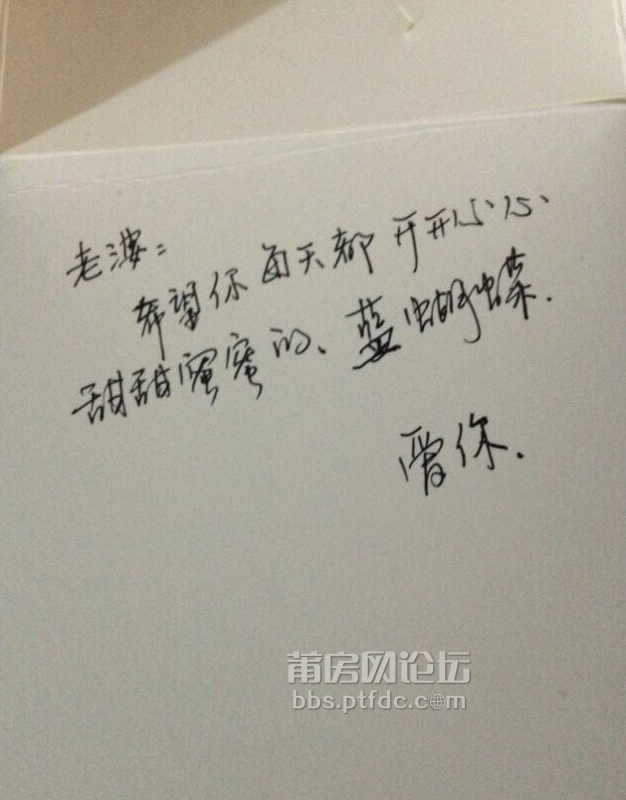 老婆：
希望你每天都开开心心
甜甜蜜蜜的、蓝蝴蝶.
爱你.
莆房网论坛
bbs.ptfdc.com